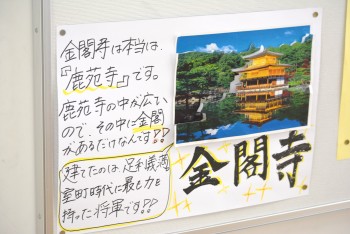 金閣寺は本当は、
『鹿苑寺』です。
鹿苑寺の中が広い
ので、その中に金閣
があるだけなんです!!
建てたのは、足利義満
室町時代に最も力を
持った将軍です!!
金閣寺